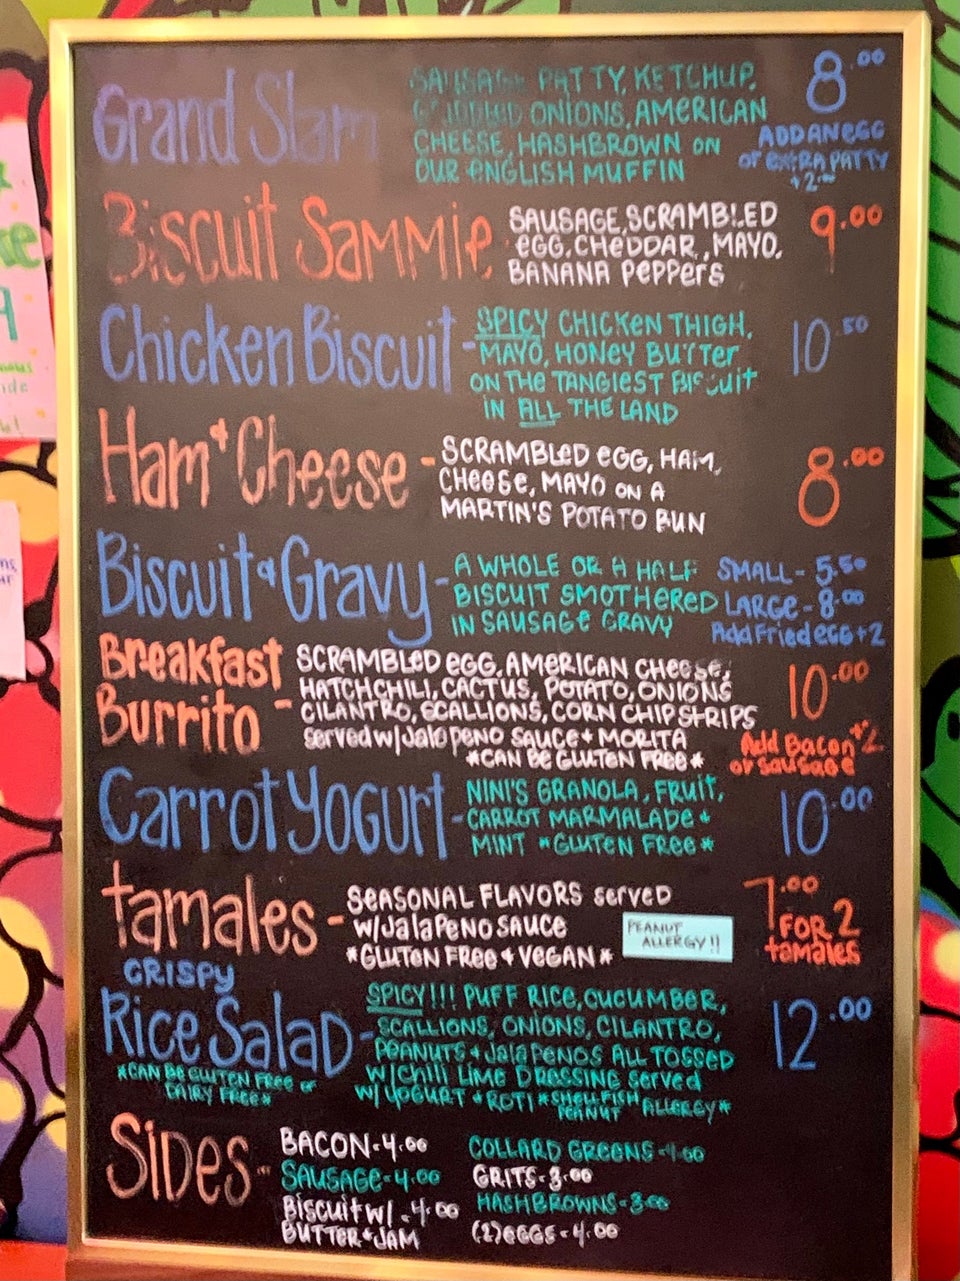 Grand Slam
SAUSAGE PATTY, KETCHUP,
GRIDDLED ONIONS, AMERICAN
CHEESE, HASHBROWN ON
OUR ENGLISH MUFFIN
8.00
ADD AN EGG
OR EXTRA PATTY
+2.00
Biscuit Sammie
SAUSAGE, SCRAMBLED
EGG, CHEDDAR, MAYO,
BANANA PEPPERS
9.00
Chicken Biscuit -
SPICY CHICKEN THIGH,
MAYO, HONEY BUTTER
ON THE TANGIEST BISCUIT
IN ALL THE LAND
10.50
Ham & Cheese -
SCRAMBLED EGG, HAM,
CHEESE, MAYO ON A
MARTIN'S POTATO BUN
8.00
Biscuit & Gravy -
A WHOLE OR A HALF
BISCUIT SMOTHERED
IN SAUSAGE GRAVY
SMALL - 5.50
LARGE - 8.00
Add Fried egg +2
Breakfast
Burrito -
SCRAMBLED EGG, AMERICAN CHEESE,
HATCH CHILI, CACTUS, POTATO, ONIONS
CILANTRO, SCALLIONS, CORN CHIP STRIPS
served w/ Jalapeno SAUCE + MORITA
*CAN BE GLUTEN FREE*
10.00
Add Bacon +2
or sausage
Carrot Yogurt -
NINI'S GRANOLA, FRUIT,
CARROT MARMALADE +
MINT *GLUTEN FREE*
10.00
tamales -
SEASONAL FLAVORS served
w/ Jalapeno SAUCE
*GLUTEN FREE + VEGAN*
PEANUT
ALLERGY!!
7.00
FOR 2
tamales
CRISPY
Rice Salad -
*CAN BE GLUTEN FREE or
DAIRY FREE*
SPICY!!! PUFF RICE, CUCUMBER,
SCALLIONS, ONIONS, CILANTRO,
PEANUTS + JalaPENOS ALL TOSSED
w/ CHILI LIME DRESSING served
w/ YOGURT + ROTI *SHELLFISH
PEANUT ALLERGY*
12.00
SIDES -
BACON - 4.00
SAUSAGE - 4.00
BISCUIT w/ - 4.00
BUTTER + JAM
COLLARD GREENS - 4.00
GRITS - 3.00
HASHBROWNS - 3.00
(2) EGGS - 4.00